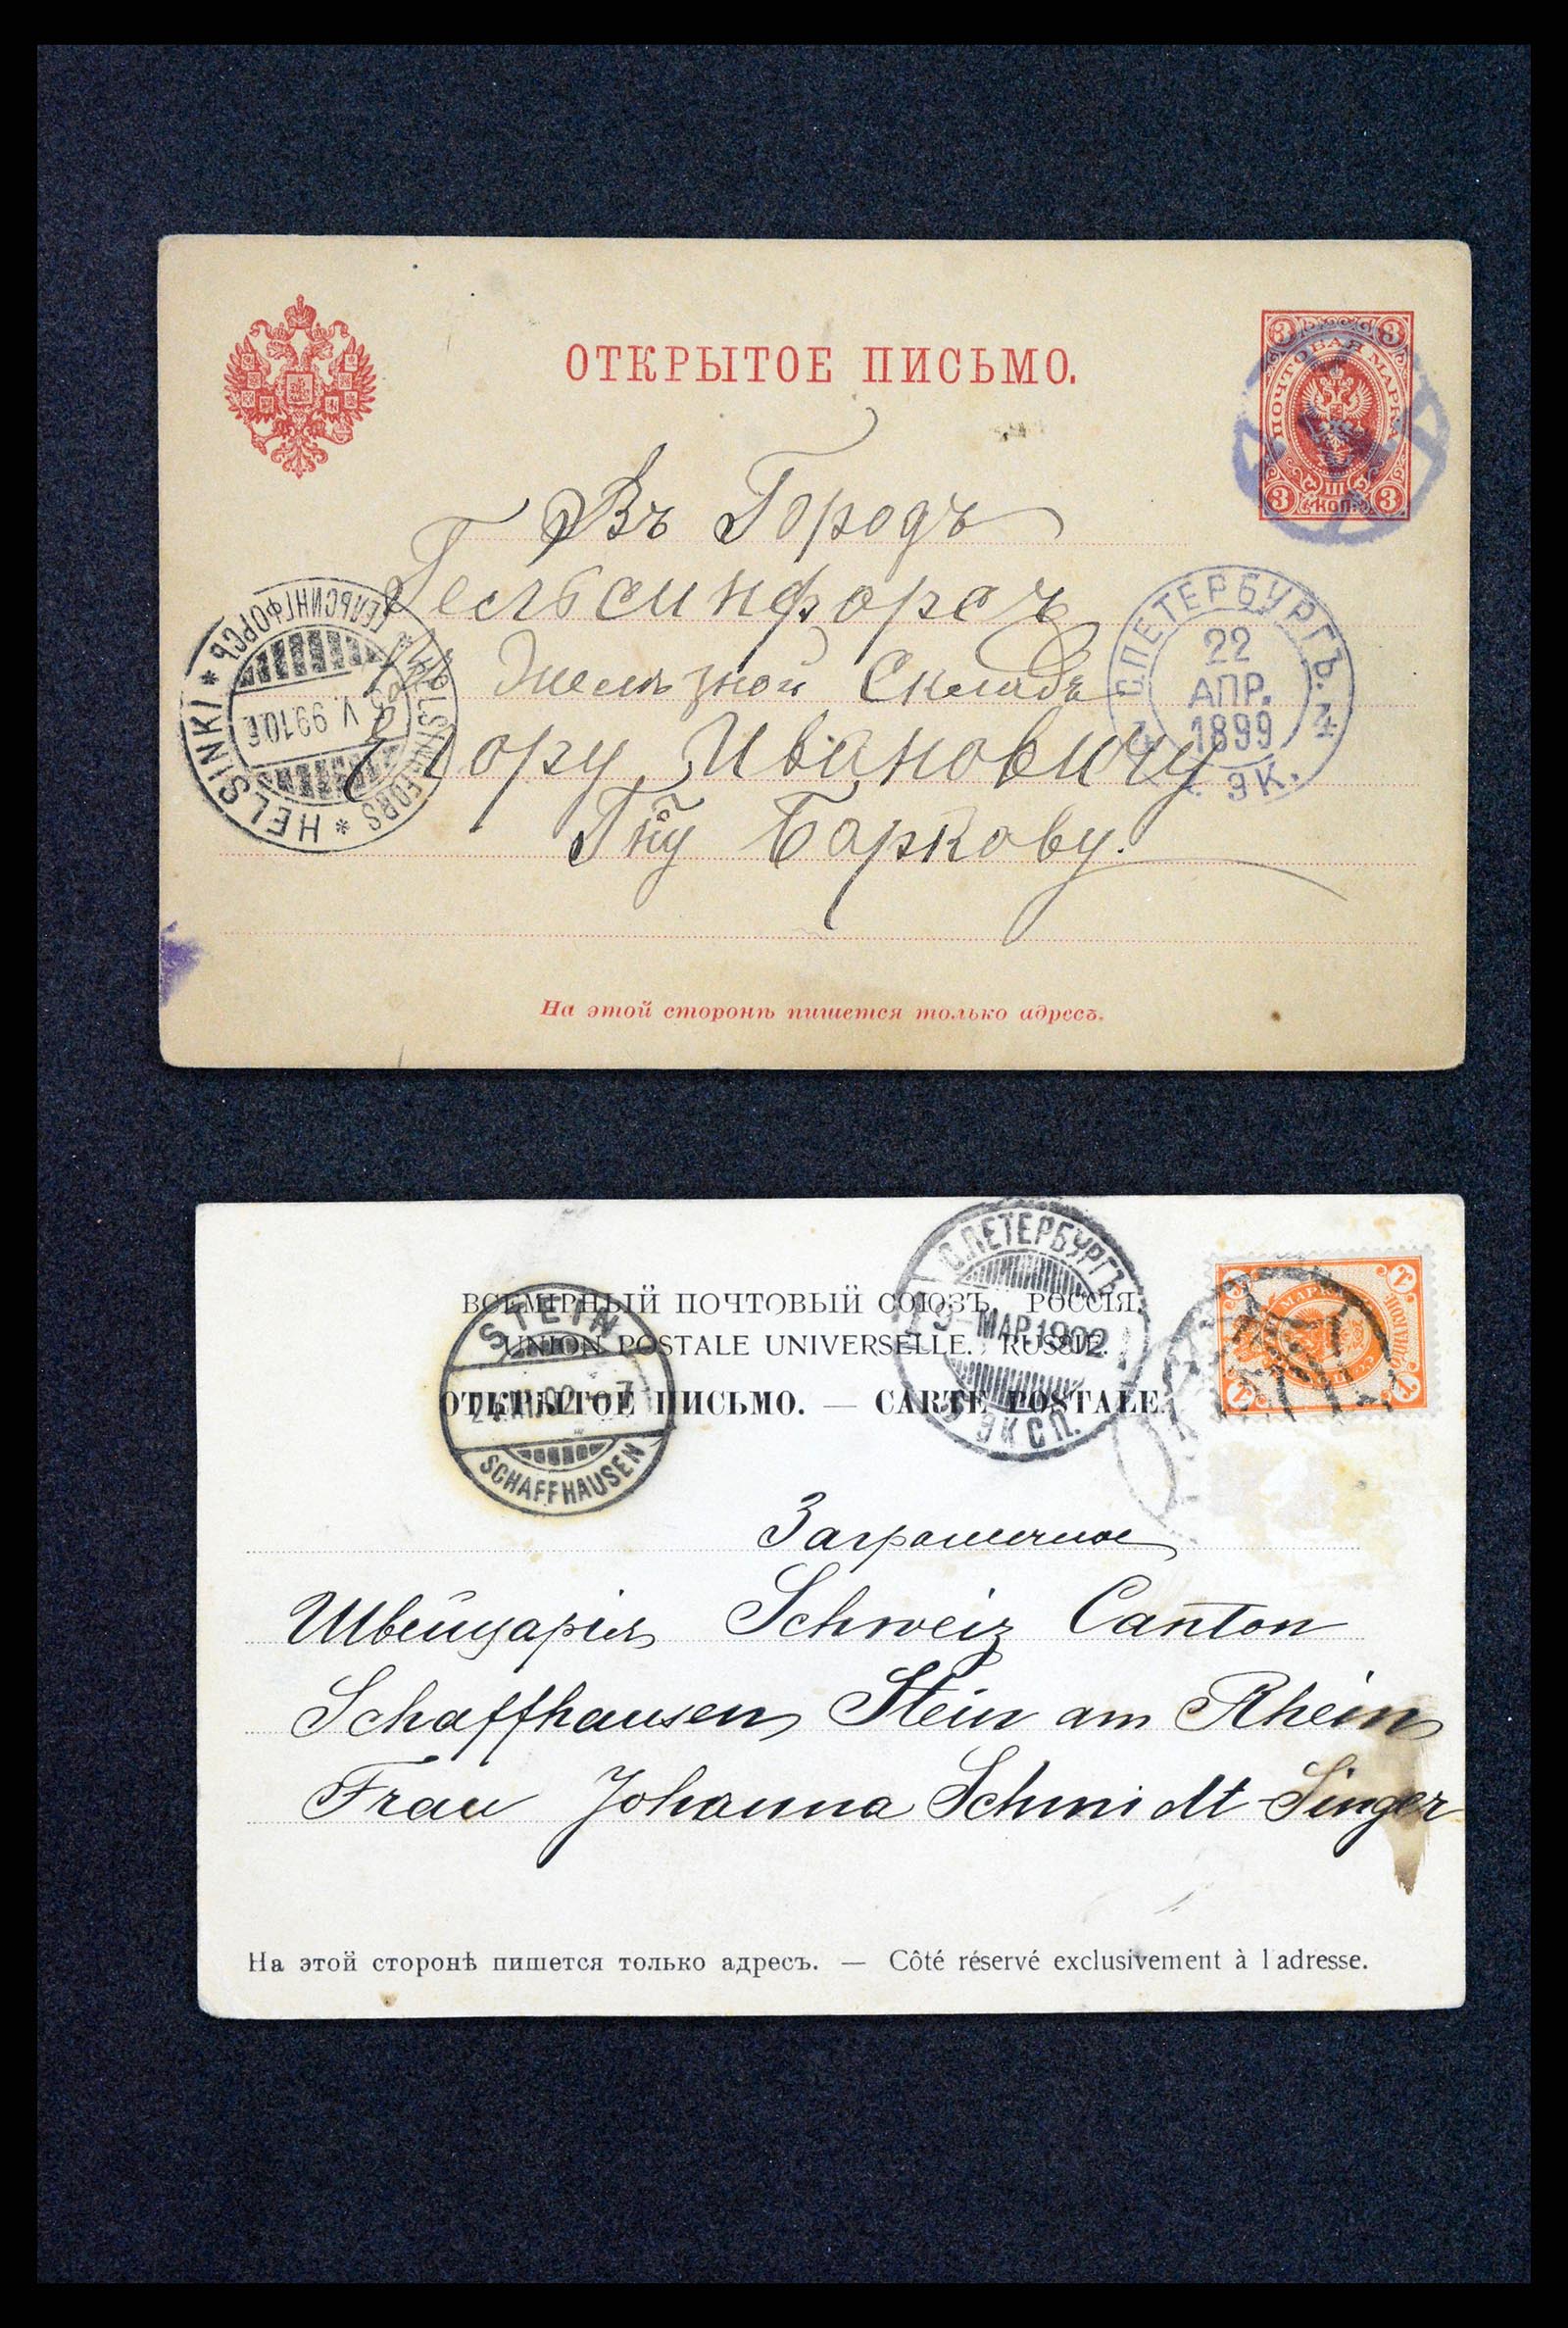 ОТКРЫТОЕ ПИСЬМО.
3 3
ПОЧТОВАЯ МАРКА
III
КОП.
3 3
Въ Городъ
Гельсингфорсъ
Въ Желѣзной Складъ
Егору Ивановичу
Гну Баркову.
С.ПЕТЕРБУРГЪ. 4
22
АПР.
1899
4 ЭК.
ГЕЛЬСИНГФОРСЪ * HELSINGFORS * HELSINKI *
V. 99.10
На этой сторонѣ пишется только адресъ.
ВСЕМІРНЫЙ ПОЧТОВЫЙ СОЮЗЪ. РОССІЯ.
UNION POSTALE UNIVERSELLE. RUSSIE.
ОТКРЫТОЕ ПИСЬМО. — CARTE POSTALE.
STEIN
02
7
SCHAFFHAUSEN
С.ПЕТЕРБУРГЪ
9-МАР.1902
ЭКСП.
Заграничное
Швейцарія Schweiz Canton
Schaffhausen Stein am Rhein
Frau Johanna Schmidt-Singer
На этой сторонѣ пишется только адресъ. — Côté réservé exclusivement à l'adresse.